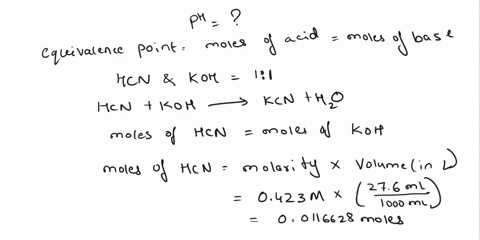 pH = ?
equivalence point = moles of acid = moles of base
HCN & KOH = 1:1
HCN + KOH ⟶ KCN + H₂O
moles of HCN = moles of KOH
moles of HCN = molarity × volume (in L)
= 0.423 M × (27.6 mL / 1000 mL)
= 0.0116628 moles